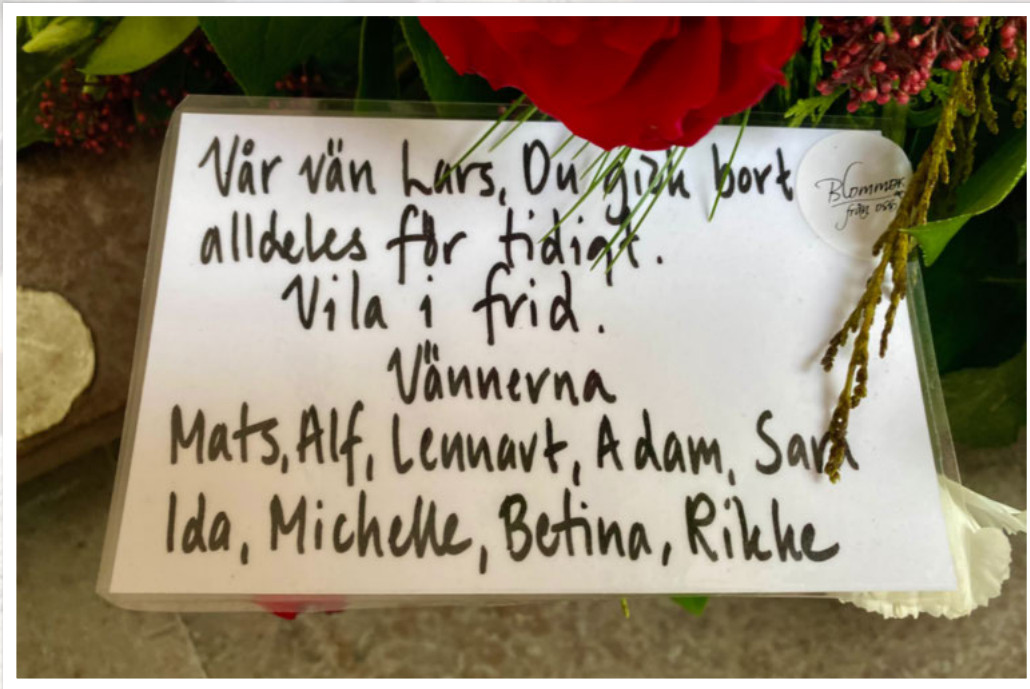 Vår vän Lars, Du gick bort
alldeles för tidigt.
Vila i frid.
Vännerna
Mats, Alf, Lennart, Adam, Sara
Ida, Michelle, Betina, Rikke
Blommor
från oss